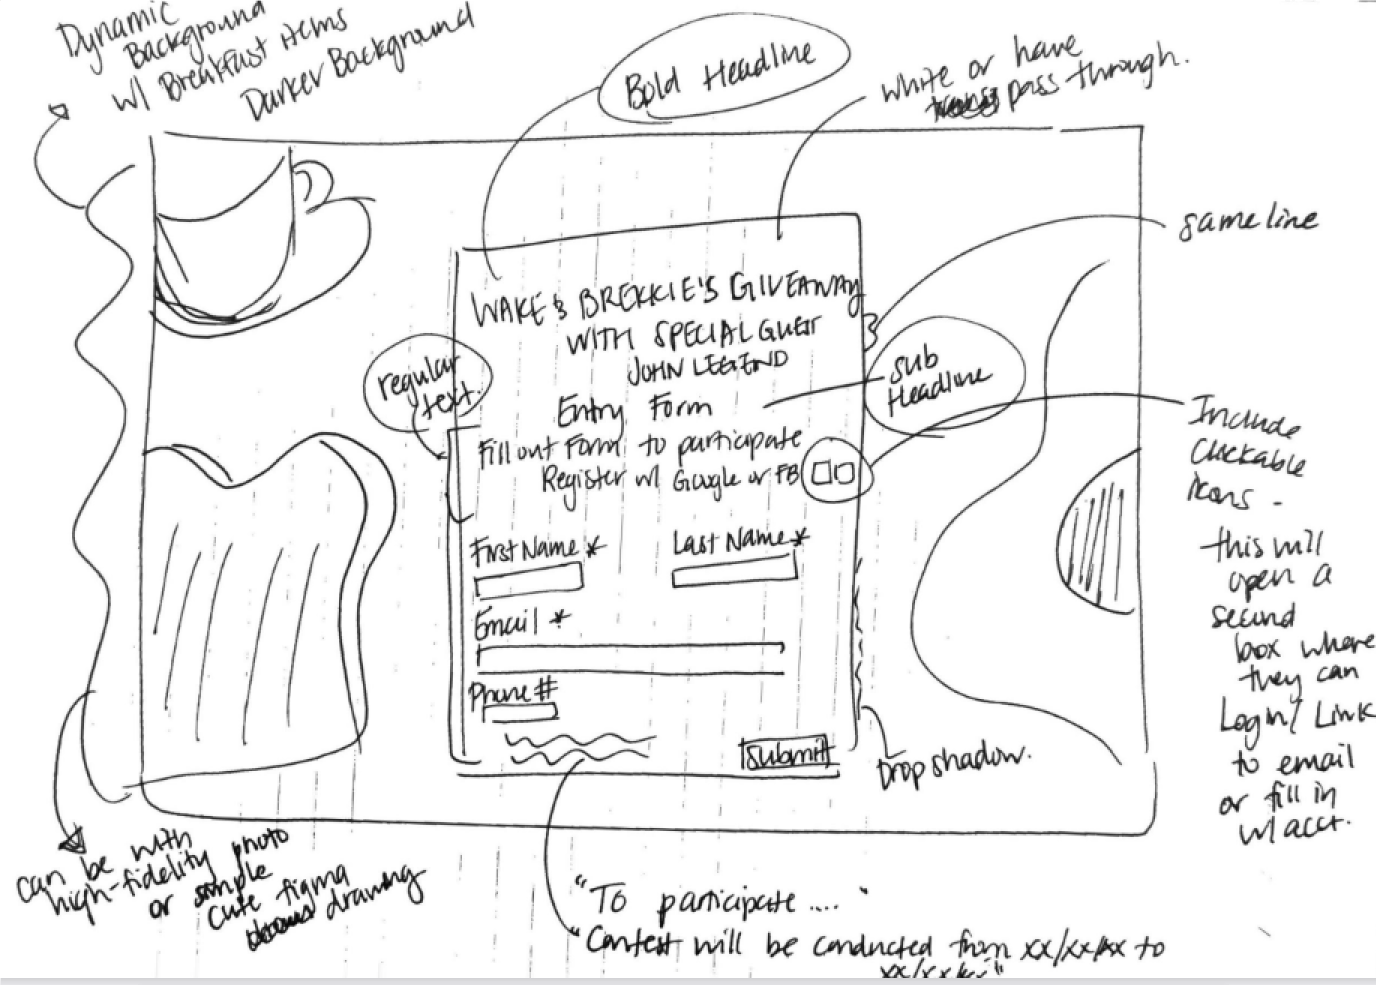 Dynamic
Background
w/ Breakfast items
Darker Background
Bold Headline
white or have
pass through.
same line
WAKE & BREKKIE'S GIVEAWAY
WITH SPECIAL GUEST
JOHN LEGEND
Sub
Headline
regular
text.
Entry Form
Fill out Form to participate
Register w/ Google or FB
Include
Clickable
icons -
this will
open a
second
box where
they can
Login/Link
to email
or fill in
w/ acct.
First Name *
Last Name *
Email *
Phone #
Submit
Drop shadow.
can be with
high-fidelity photo
or simple
cute figma
drawing
"To participate .... "
"Contest will be conducted from xx/xx/xx to
xx/xx/xx"